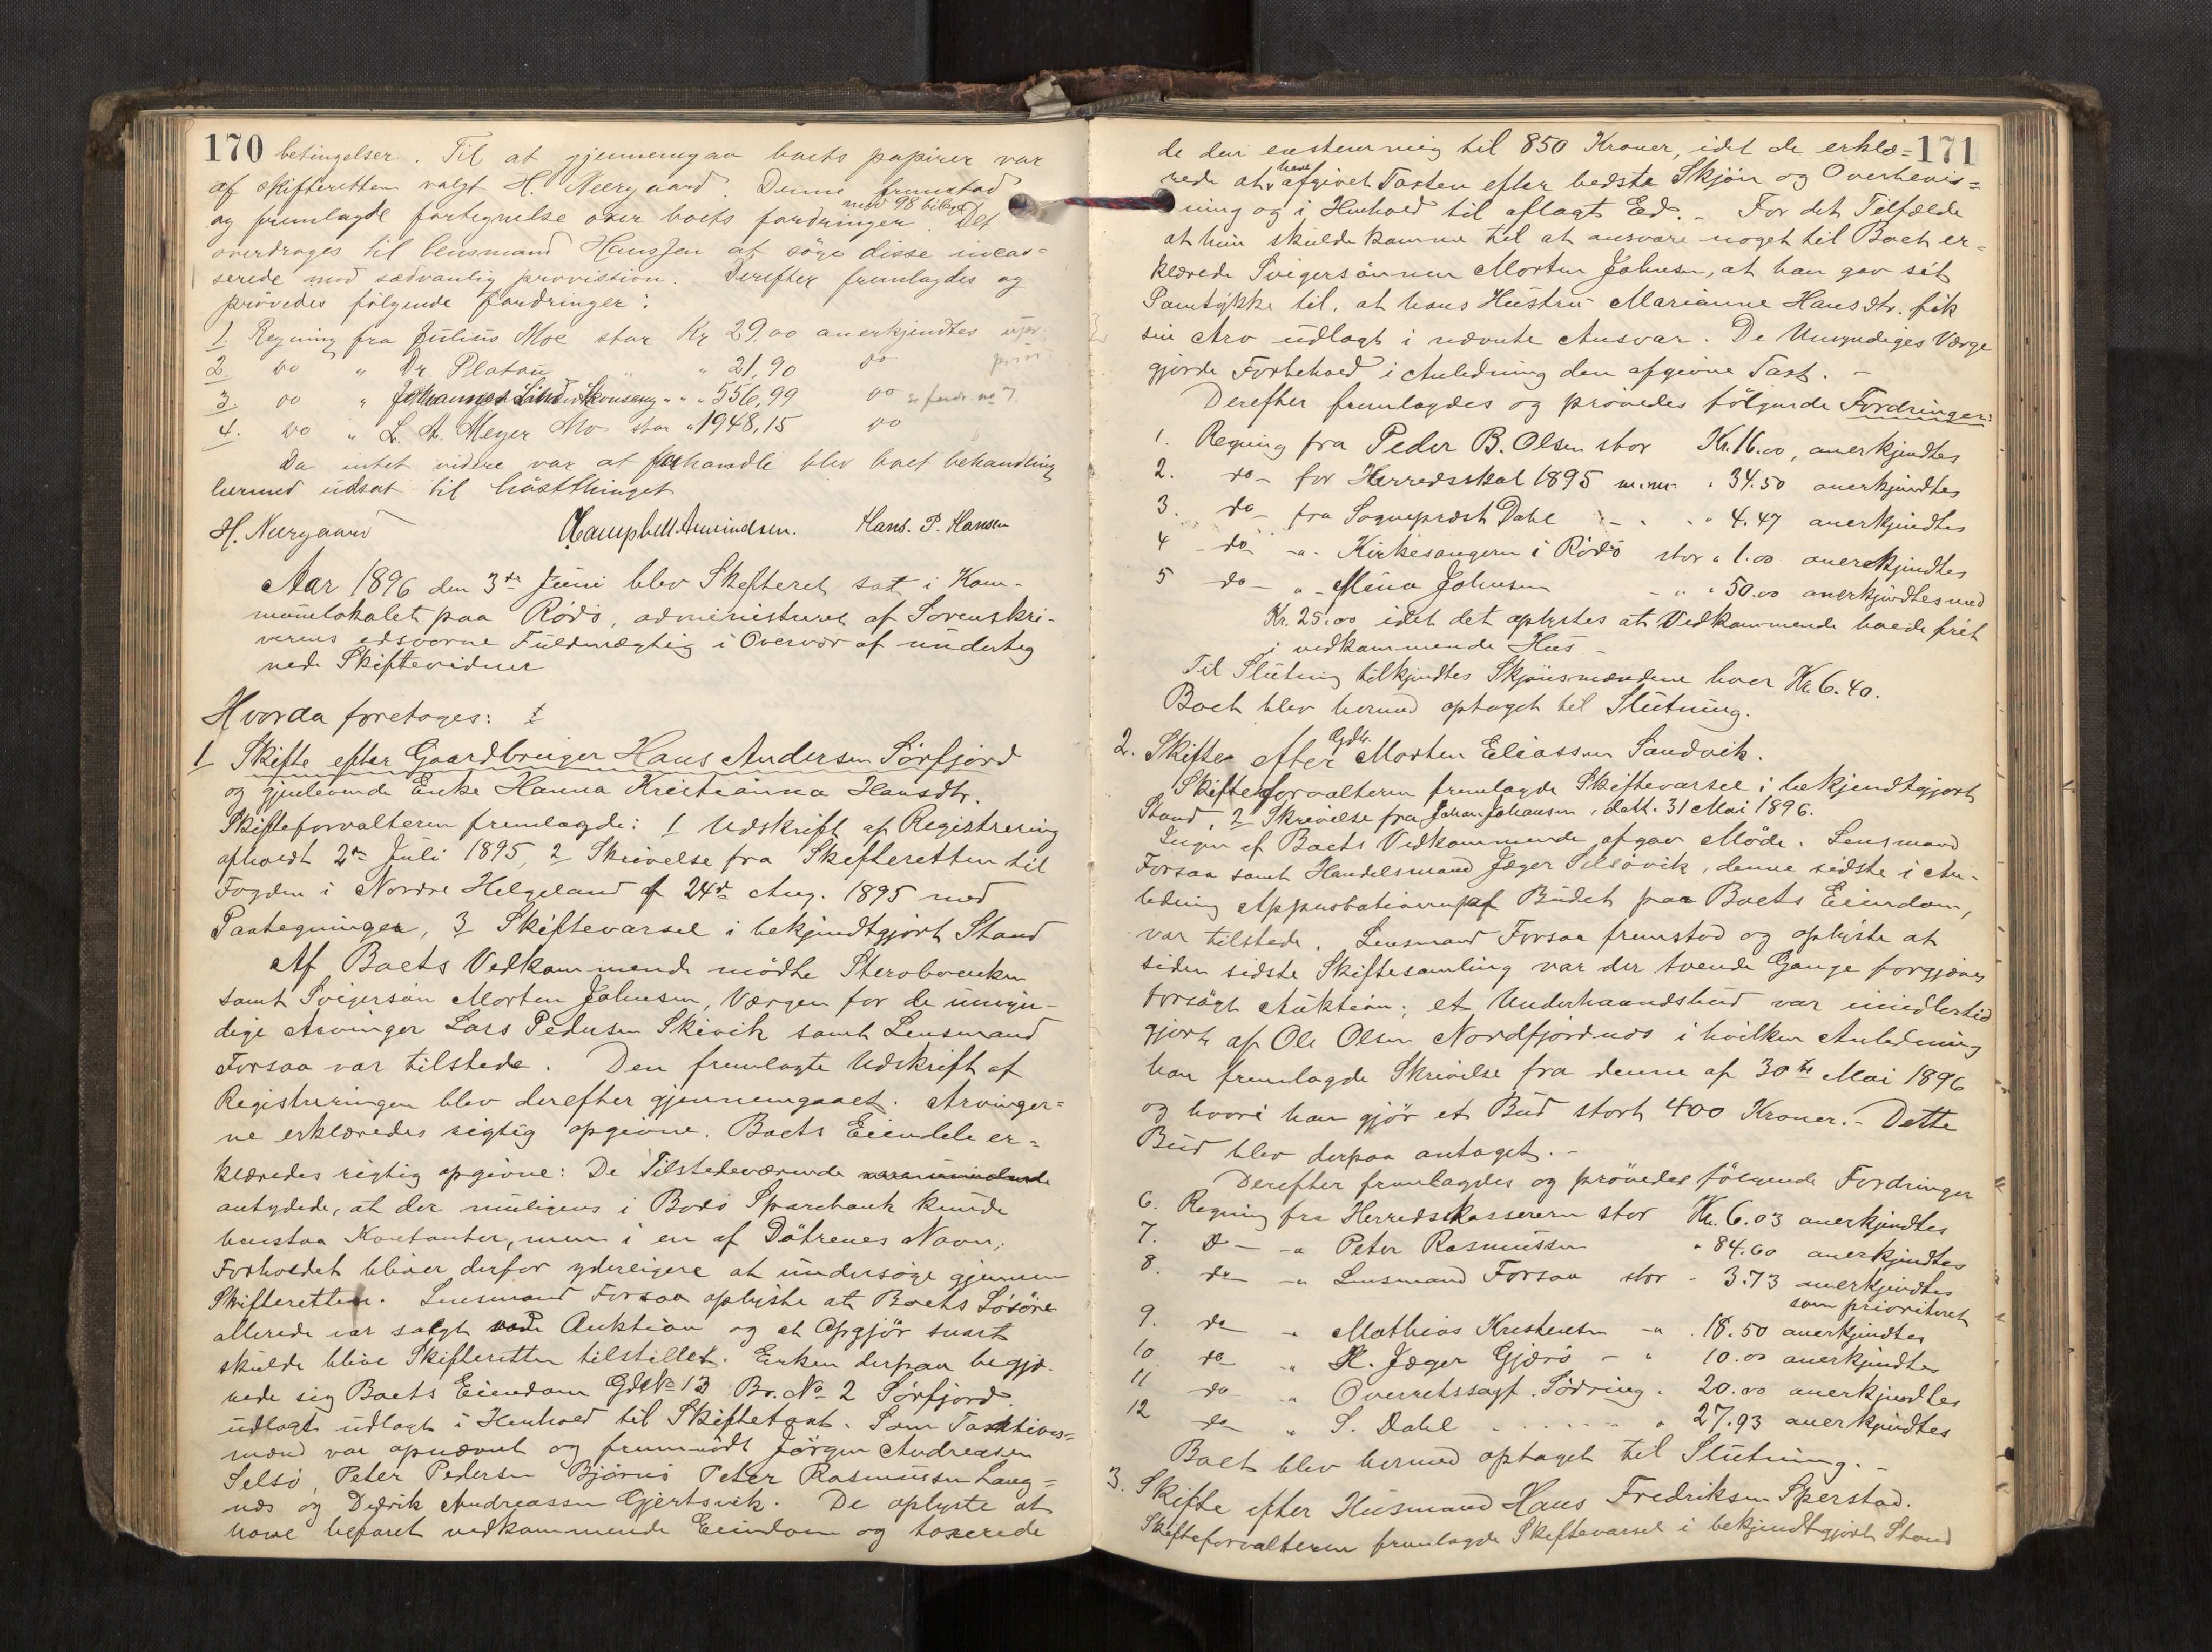 170 betingelser. Til at gjennemgaa boets papirer var
af skifteretten valgt H. Neergaard. Denne fremstod
og fremlagde fortegnelse over boets fordringer med 98 bilage. Det
overdroges til lensmand Hanssen at søge disse incas-
serede mod sædvanlig provission. Derefter fremlagdes og
prøvedes følgende fordringer:
1. Regning fra Julius Moe stor Kr 29.00 anerkjendtes upr.
2. do " Dr. Platou " " 21,90 do prior.
3. do " Johannes Lind Skonseng " " " 556,99 do se fordr. no 7
4. do " L. A. Meyer Mo stor " 1948,15 do
Da intet videre var at forhandle blev boet behandling
hermed udsat til høstthinget
H. Neergaard Campbell Amundsen. Hans. P. Hansen
Aar 1896 den 3de Juni blev Skifteret sat i Kom-
munelokalet paa Rødø, administreret af Sorenskri-
verens edsvorne Fuldmægtig i Overvær af underteg
nede Skiftevidner
Hvorda foretoges:
1 Skifte efter Gaardbruger Hans Andersen Sørfjord
og gjenlevende Enke Hanna Kristianna Hansdtr.
Skifteforvalteren fremlagde: 1 Udskrift af Registrering
afholdt 2den Juli 1895, 2 Skrivelse fra Skifteretten til
Fogden i Nordre Helgeland af 24de Aug. 1895 med
Paategninger, 3 Skiftevarsel i bekjendtgjort Stand
Af Boets Vedkommende mødte Stervboenken
samt Svigersøn Morten Johnsen, Værgen for de umyn-
dige Arvinger Lars Pedersen Skivik samt Lensmand
Forsaa var tilstede. Den fremlagte Udskrift af
Registreringen blev derefter gjennemgaaet. Arvinger-
ne erklæredes rigtig opgivne. Boets Eiendele er-
klæredes rigtig opgivne: De Tilstedeværende
antydede, at der muligens i Bodø Sparebank kunde
henstaa Kontanter, men i en af Døtrenes Navn;
Forholdet bliver derfor yderligere at undersøge gjennem
Skifteretten. Lensmand Forsaa oplyste at Boets Løsøre
allerede var solgt ved Auktion og at Opgjør snart
skulde blive Skifteretten tilstillet. Enken derpaa begjæ-
rede sig Boets Eiendom Gds No 13 Br. No 2 Sørfjord
udlagt udlagt i Henhold til Skiftetaxt. Som Taxtives-
mænd var opnævnt og fremmødt Jørgen Andreasen
Selsø, Peter Pedersen Bjørnø Peter Rasmussen Lang-
næs og Didrik Andreassen Gjersvik. De oplyste at
have befaret vedkommende Eiendom og taxerede
171
de den enstemmig til 850 Kroner, idet de erklæ-
rede at have afgivet Taxten efter bedste Skjøn og Overbevis-
ning og i Henhold til aflagt Ed. - For det Tilfælde
at hun skulde komme til at ansvare noget til Boet er-
klærede Svigersønnen Morten Johnsen, at han gav sit
Samtykke til, at hans Hustru Marianne Hansdtr. fik
sin Arv udlagt i nævnte Ansvar. De Umyndiges Værge
gjorde Forbehold i Anledning den afgivne Taxt. -
Derefter fremlagdes og prøvedes følgende Fordringer:
1. Regning fra Peder B. Olsen stor Kr. 16.00, anerkjendtes
2. do - for Herredsskat 1895 m.m. " 34.50 anerkjendtes
3. do - fra Sogneprest Dahl - - " 4.47 anerkjendtes
4 - do - " - Kirkesangeren i Rødø stor " 1.00 anerkjendtes
5 do - " - Mina Johnsen - " " 50.00 anerkjendtes med
Kr. 25.00 idet det oplystes at Vedkommende boede frit
i vedkommende Hus -
Til Slutning tilkjendtes Skjønsmændene hver Kr. 6.40.
Boet blev hermed optaget til Slutning.
2. Skifte efter Gdbr. Morten Eliassen Sandvik.
Skifteforvalteren fremlagde Skiftevarsel i bekjendtgjort
Stand, 2 Skrivelse fra Johan Johansen, dat. 31 Mai 1896.
Ingen af Boets Vedkommende afgav Møde. Lensmand
Forsaa samt Handelsmand Jæger Selsøvik, denne sidste i An-
ledning Approbationen af Budet paa Boets Eiendom,
var tilstede. Lensmand Forsaa fremstod og oplyste at
siden sidste Skiftesamling var der tvende Gange forgjæves
forsøgt Auktion; et Underhaandsbud var imidlertid
gjort af Ole Olsen Nordfjordnæs i hvilken Anledning
han fremlagde Skrivelse fra denne af 30te Mai 1896
og hvori han gjør et Bud stort 400 Kroner. - Dette
Bud blev derpaa antaget. -
Derefter fremlagdes og prøvedes følgende Fordringer
6. Regning fra Herredskassereren stor Kr. 6.03 anerkjendtes
7. Do - " Peter Rasmussen " 84.60 anerkjendtes
8. do - " Lensmand Forsaa stor - 3.73 anerkjendtes
som prioriteret
9. do " Mathias Kristensen - " . 18.50 anerkjendtes
10 do " H. Jæger Gjærø - " 10.00 anerkjendtes
11 do " Overretssagf. Sødring. 20.00 anerkjendtes
12 do " S. Dahl - - - - " 27.93 anerkjendtes
Boet blev hermed optaget til Slutning. -
3. Skifte efter Husmand Hans Fredriksen Sperstad.
Skifteforvalteren fremlagde Skiftevarsel i bekjendtgjort Stand